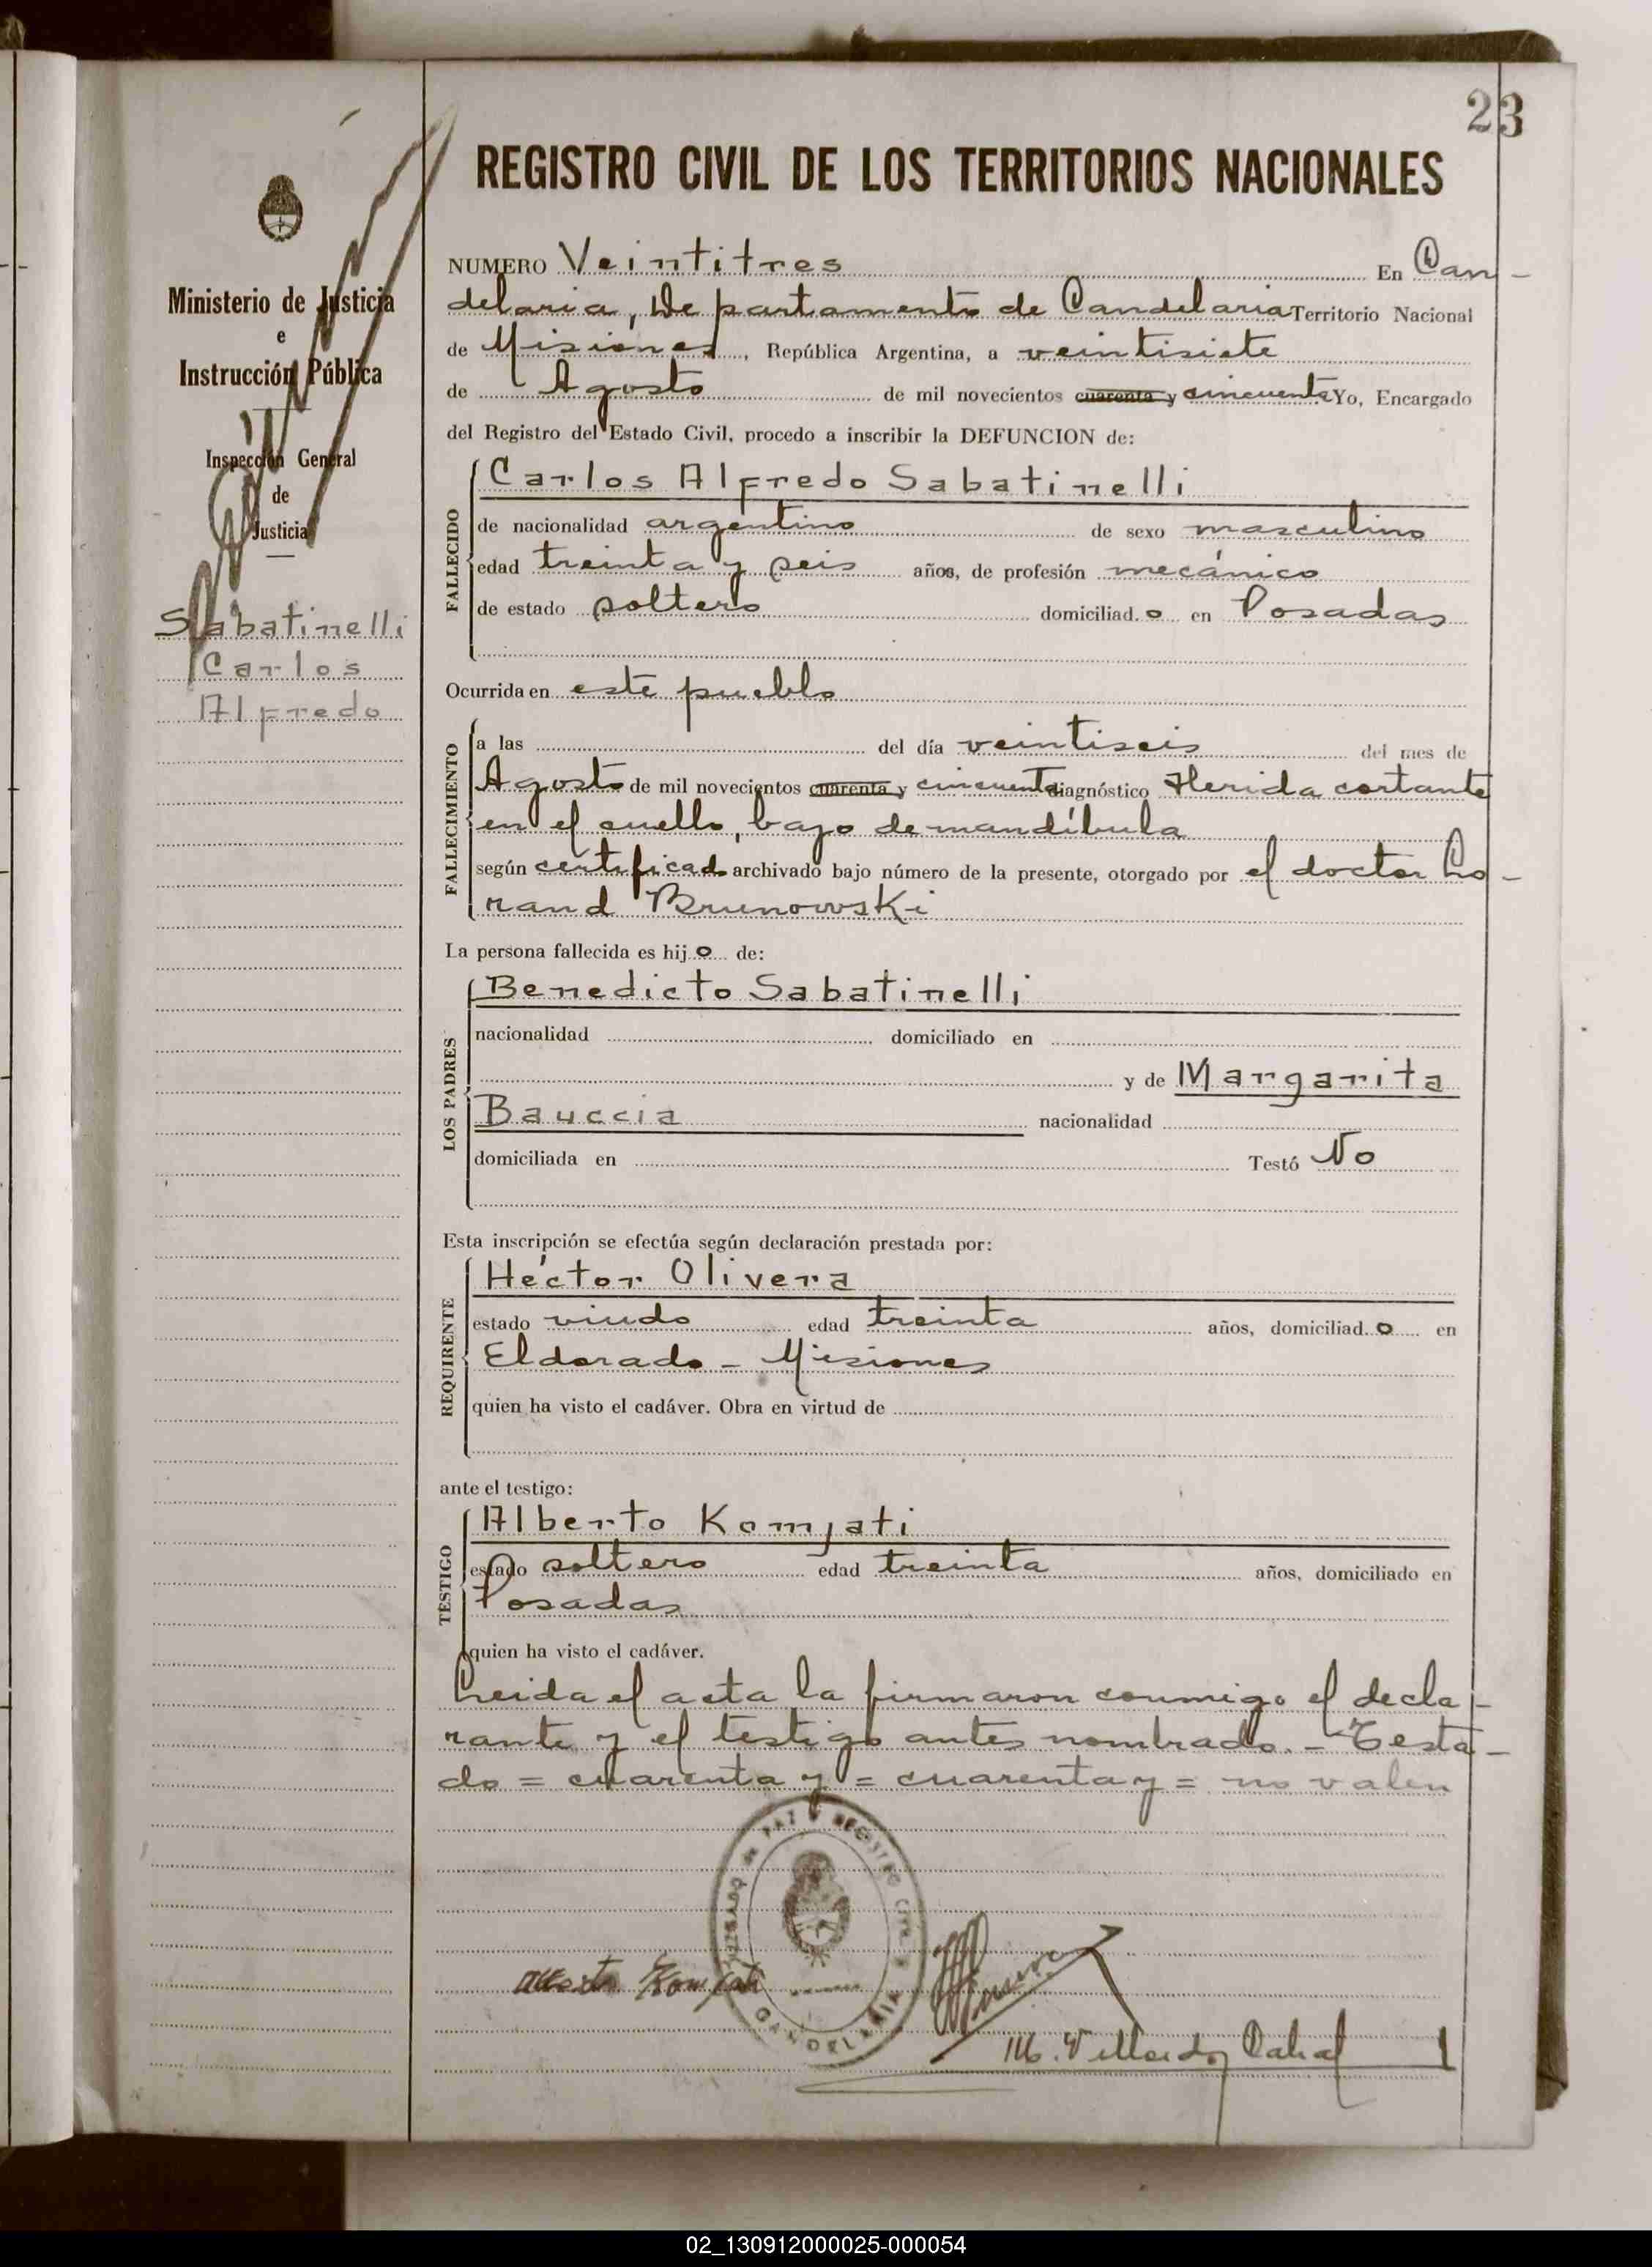 23
REGISTRO CIVIL DE LOS TERRITORIOS NACIONALES
Ministerio de Justicia
e
Instrucción Pública
Inspección General
de
Justicia
Sabatinelli
Carlos
Alfredo
NUMERO Veintitres En Can-
delaria, Departamento de Candelaria Territorio Nacional
de Misiones, República Argentina, a veintisiete
de Agosto de mil novecientos cuarenta y cincuenta Yo, Encargado
del Registro del Estado Civil, procedo a inscribir la DEFUNCION de:
FALLECIDO
Carlos Alfredo Sabatinelli
de nacionalidad argentino de sexo masculino
edad treinta y seis años, de profesión mecánico
de estado soltero domiciliad o en Posadas
Ocurrida en este pueblo
FALLECIMIENTO
a las del día veintiseis del mes de
Agosto de mil novecientos cuarenta y cincuenta diagnóstico Herida cortante
en el cuello, bajo de mandíbula
según certificado archivado bajo número de la presente, otorgado por el doctor Lo-
rand Brunowski
La persona fallecida es hij o de:
LOS PADRES
Benedicto Sabatinelli
nacionalidad domiciliado en
y de Margarita
Bauccia nacionalidad
domiciliada en Testó No
Esta inscripción se efectúa según declaración prestada por:
REQUIRENTE
Héctor Olivera
estado viudo edad treinta años, domiciliad o en
Eldorado - Misiones
quien ha visto el cadáver. Obra en virtud de
ante el testigo:
TESTIGO
Alberto Komjati
estado soltero edad treinta años, domiciliado en
Posadas
quien ha visto el cadáver.
Leida el acta la firmaron conmigo el decla-
rante y el testigo antes nombrado. - Testa-
do = cuarenta y = cuarenta y = no valen
JUZGADO de PAZ Y REGISTRO CIVIL
CANDELARIA
Alberto Komjati
02_130912000025-000054